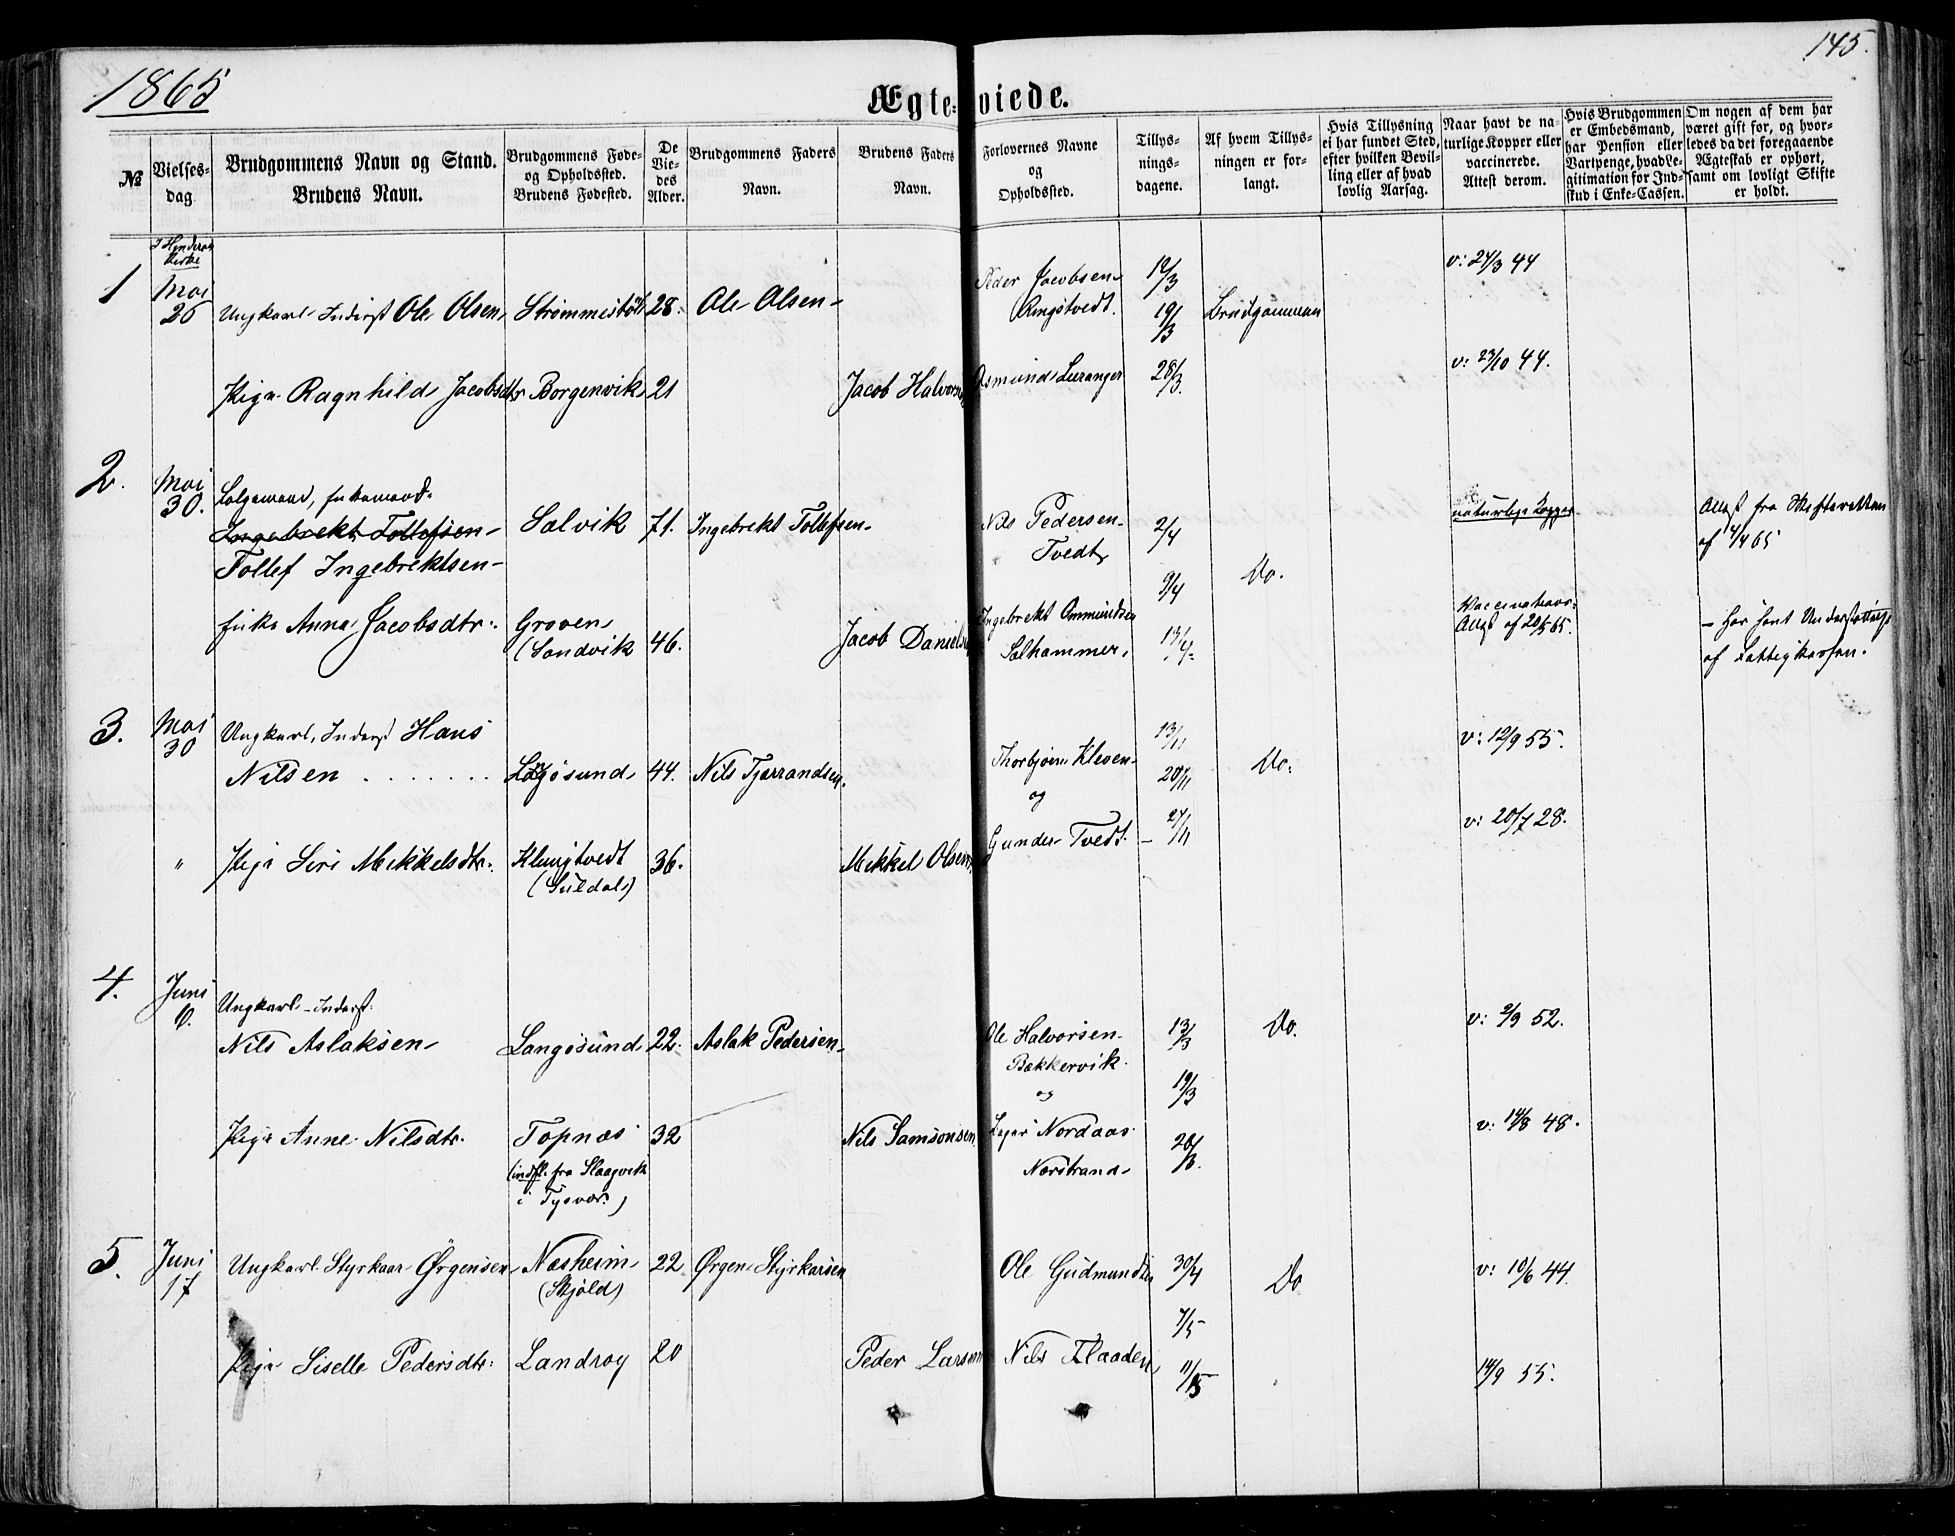 1865
145.
Ægte-viede.
№
Vielses-
dag
Brudgommens Navn og Stand.
Brudens Navn.
Brudgommens Føde-
og Opholdssted.
Brudens Fødested.
De
Vie-
des
Alder.
Brudgommens Faders
Navn.
Brudens Faders
Navn.
Forlovernes Navne
og
Opholdssted.
Tillys-
nings-
dagene.
Af hvem Tillys-
ningen er for-
langt.
Hvis Tillysning
ei har fundet Sted,
efter hvilken Bevil-
ling eller af hvad
lovlig Aarsag.
Naar havt de na-
turlige Kopper eller
vaccinerede.
Attest derom.
Hvis Brudgommen
er Embedsmand,
har Pension eller
Vartpenge, hvad Le-
gitimation for Ind-
skud i Enke-Cassen.
Om nogen af dem har
været gift før, og hvor-
ledes da det foregaaende
Ægteskab er ophørt,
samt om lovligt Skifte
er holdt.
Kirke
1 Mai 26 Ungkarl Inderst Ole Olsen 28. Ole Olsen
Peder Jacobsen Ringstvedt. 12/3 19/3 Brudgommen v: 24/3 44
Pige Ragnhild Jacobsdtr Borgenvik 21 Jacob Halvorsen
28/3. v: 23/10 44.
2. Mai 30. Enkemand
Ingebrekt Tollefsen
Tollef Ingebrektsen Salvik 71. Ingebrekt Tollefsen
Nils Pedersen Tvedt 2/4 9/4 Do. naturlige Kopper
Attest fra Skifteretten
af 4/4 65
Enke Anna Jacobsdtr. Groven (Sandvik 46. Jacob Danielsen
Ingebrekt Ommundsen
Salhammer 17/4 Vaccinations-
Attest af 20/5 65.
- har havt Understøttelse
af Fattigkassen.
3. Mai 30 Ungkarl, Inderst Hans
Nilsen 44. Nils Tjerrandsen.
Thorbjørn og 13/11 20/11 Do. v: 12/9 55.
" Pige Siri Mikkelsdtr. Klungtvedt (Suldal) 36. Mikkel Olsen
Gunder Tvedt. 27/11 v: 20/7 28.
4. Juni 6. Ungkarl - Inderst.
Nils Aslaksen Langøsund 22. Aslak Pedersen
Ole Halvorsen Bakkervik og 13/3 19/3 Do. v: 2/9 52.
Pige Anne Nilsdtr. Topnæs 32 Nils Samsonsen
(indfl. fra Slaagvik
i Tysvær.)
Nordaas Norstrand 28/3. v: 14/8 48.
5. Juni 17 Ungkarl Styrkaar Ørgensen Næsheim (Skjold) 22 Ørgen Styrkarsen
Ole Gudmundsen 30/4 7/5 Do v: 10/6 44.
Pige Siselle Pedersdtr: Landroy 20 Peder Larsen
Nils Flaaden 11/5 14/9 55.